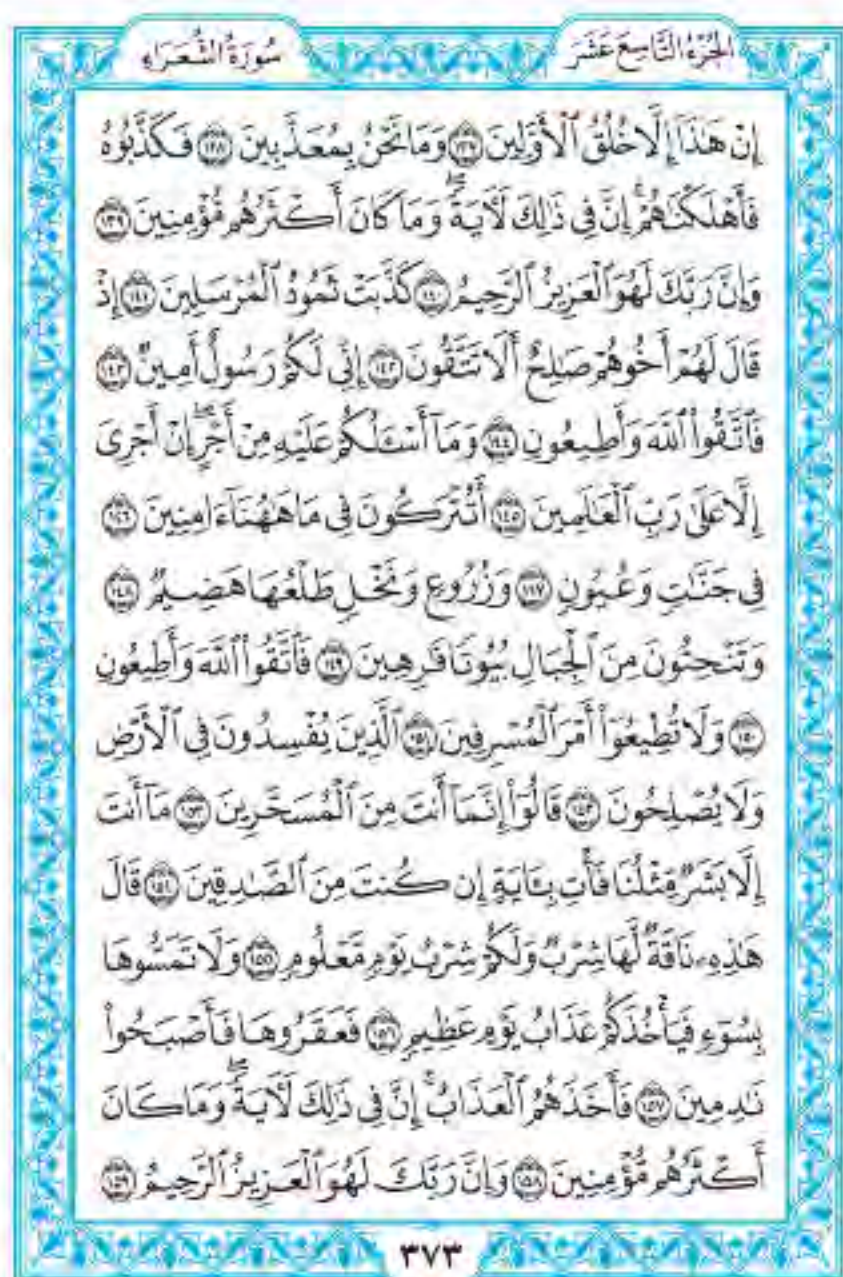 الجزء التاسع عشر
سورة الشعراء
إِنْ هَٰذَآ إِلَّا خُلُقُ ٱلْأَوَّلِينَ ١٣٧ وَمَا نَحْنُ بِمُعَذَّبِينَ ١٣٨ فَكَذَّبُوهُ
فَأَهْلَكْنَٰهُمْ ۗ إِنَّ فِى ذَٰلِكَ لَأَيَةً ۖ وَمَا كَانَ أَكْثَرُهُم مُّؤْمِنِينَ ١٣٩
وَإِنَّ رَبَّكَ لَهُوَ ٱلْعَزِيزُ ٱلرَّحِيمُ ١٤٠ كَذَّبَتْ ثَمُودُ ٱلْمُرْسَلِينَ ١٤١ إِذْ
قَالَ لَهُمْ أَخُوهُمْ صَٰلِحٌ أَلَا تَتَّقُونَ ١٤٢ إِنِّى لَكُمْ رَسُولٌ أَمِينٌ ١٤٣
فَٱتَّقُوا۟ ٱللَّهَ وَأَطِيعُونِ ١٤٤ وَمَآ أَسْـَٔلُكُمْ عَلَيْهِ مِنْ أَجْرٍ ۖ إِنْ أَجْرِىَ
إِلَّا عَلَىٰ رَبِّ ٱلْعَٰلَمِينَ ١٤٥ أَتُتْرَكُونَ فِى مَا هَٰهُنَآ ءَامِنِينَ ١٤٦
فِى جَنَّٰتٍ وَعُيُونٍ ١٤٧ وَزُرُوعٍ وَنَخْلٍ طَلْعُهَا هَضِيمٌ ١٤٨
وَتَنْحِتُونَ مِنَ ٱلْجِبَالِ بُيُوتًا فَٰرِهِينَ ١٤٩ فَٱتَّقُوا۟ ٱللَّهَ وَأَطِيعُونِ
١٥٠ وَلَا تُطِيعُوٓا۟ أَمْرَ ٱلْمُسْرِفِينَ ١٥١ ٱلَّذِينَ يُفْسِدُونَ فِى ٱلْأَرْضِ
وَلَا يُصْلِحُونَ ١٥٢ قَالُوٓا۟ إِنَّمَآ أَنتَ مِنَ ٱلْمُسَحَّرِينَ ١٥٣ مَآ أَنتَ
إِلَّا بَشَرٌ مِّثْلُنَا فَأْتِ بِـَٔايَةٍ إِن كُنتَ مِنَ ٱلصَّٰدِقِينَ ١٥٤ قَالَ
هَٰذِهِۦ نَاقَةٌ لَّهَا شِرْبٌ وَلَكُمْ شِرْبُ يَوْمٍ مَّعْلُومٍ ١٥٥ وَلَا تَمَسُّوهَا
بِسُوٓءٍ فَيَأْخُذَكُمْ عَذَابُ يَوْمٍ عَظِيمٍ ١٥٦ فَعَقَرُوهَا فَأَصْبَحُوا۟
نَٰدِمِينَ ١٥٧ فَأَخَذَهُمُ ٱلْعَذَابُ ۗ إِنَّ فِى ذَٰلِكَ لَأَيَةً ۖ وَمَا كَانَ
أَكْثَرُهُم مُّؤْمِنِينَ ١٥٨ وَإِنَّ رَبَّكَ لَهُوَ ٱلْعَزِيزُ ٱلرَّحِيمُ ١٥٩
٣٧٣